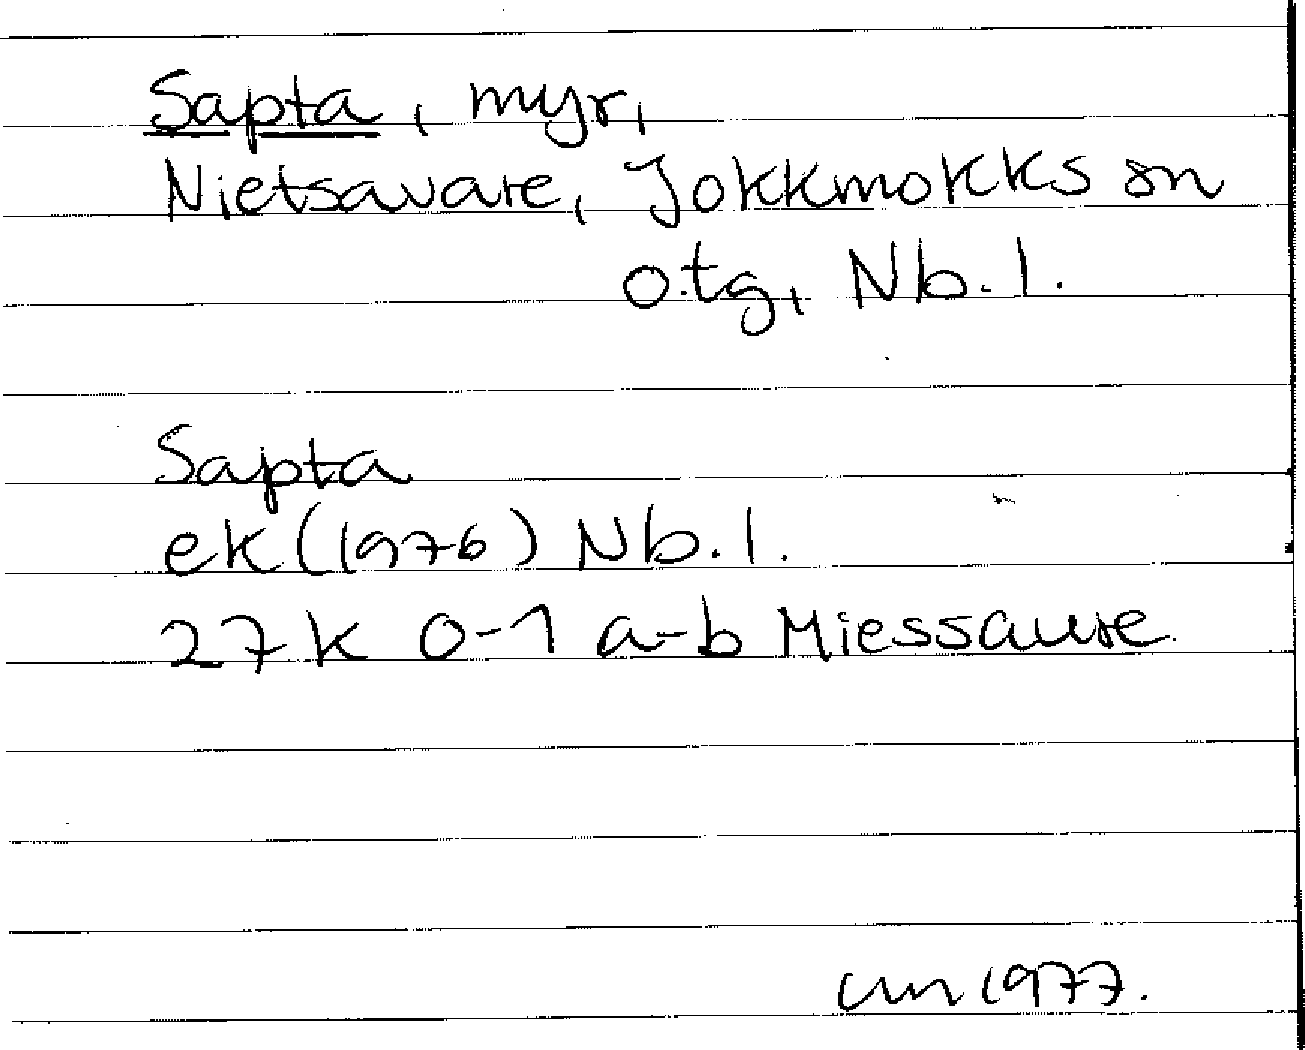 Sapta, myr,
Nietsavare, Jokkmokks sn
o.tg, Nb.l.
Sapta
ek (1976) Nb.l.
27 K 0-1 a-b Miessaure
1977.